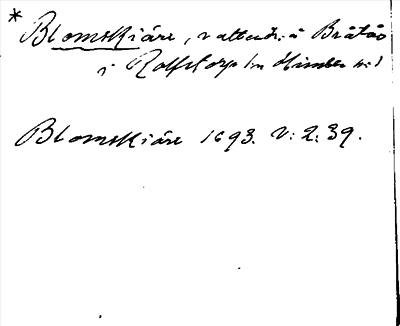 * Blomskiäre, vattudr. å Bråtås
i Rolfstorp sn Himle hd
Blomskiäre 1693. V: 2: 39.